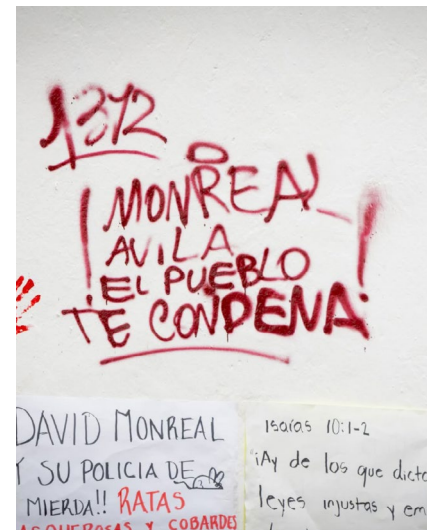 1312
¡MONREAL
AVILA
EL PUEBLO
TE CONDENA!
DAVID MONREAL
Y SU POLICIA DE
MIERDA!! RATAS
ASQUEROSAS Y COBARDES
Isaías 10:1-2
"¡Ay de los que dicta
leyes injustas y em